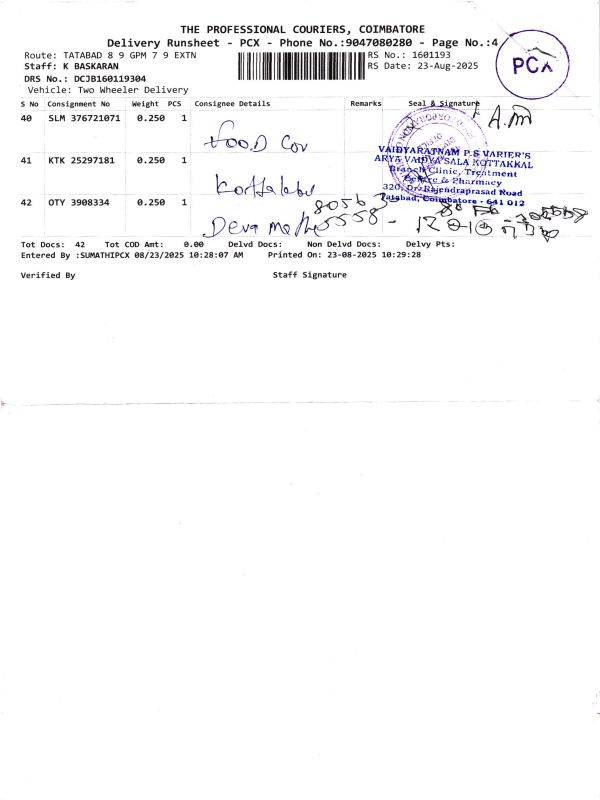 THE PROFESSIONAL COURIERS, COIMBATORE
Delivery Runsheet - PCX - Phone No.:9047080280 - Page No.:4
Route: TATABAD 8 9 GPM 7 9 EXTN
RS No.: 1601193
Staff: K BASKARAN
RS Date: 23-Aug-2025
DRS No.: DCJB160119304
Vehicle: Two Wheeler Delivery
PCX
S No Consignment No Weight PCS Consignee Details Remarks Seal & Signature
40 SLM 376721071 0.250 1
Food Cor
41 KTK 25297181 0.250 1
VAIDYARATNAM P.S VARIER'S
ARYA VAIDYA SALA KOTTAKKAL
Branch Clinic, Treatment
Centre & Pharmacy
320, Dr. Rajendraprasad Road
Tatabad, Coimbatore - 641 012
42 OTY 3908334 0.250 1
80563
Deva
5558
Tot Docs: 42 Tot COD Amt: 0.00 Delvd Docs: Non Delvd Docs: Delvy Pts:
Entered By :SUMATHIPCX 08/23/2025 10:28:07 AM Printed On: 23-08-2025 10:29:28
Verified By Staff Signature